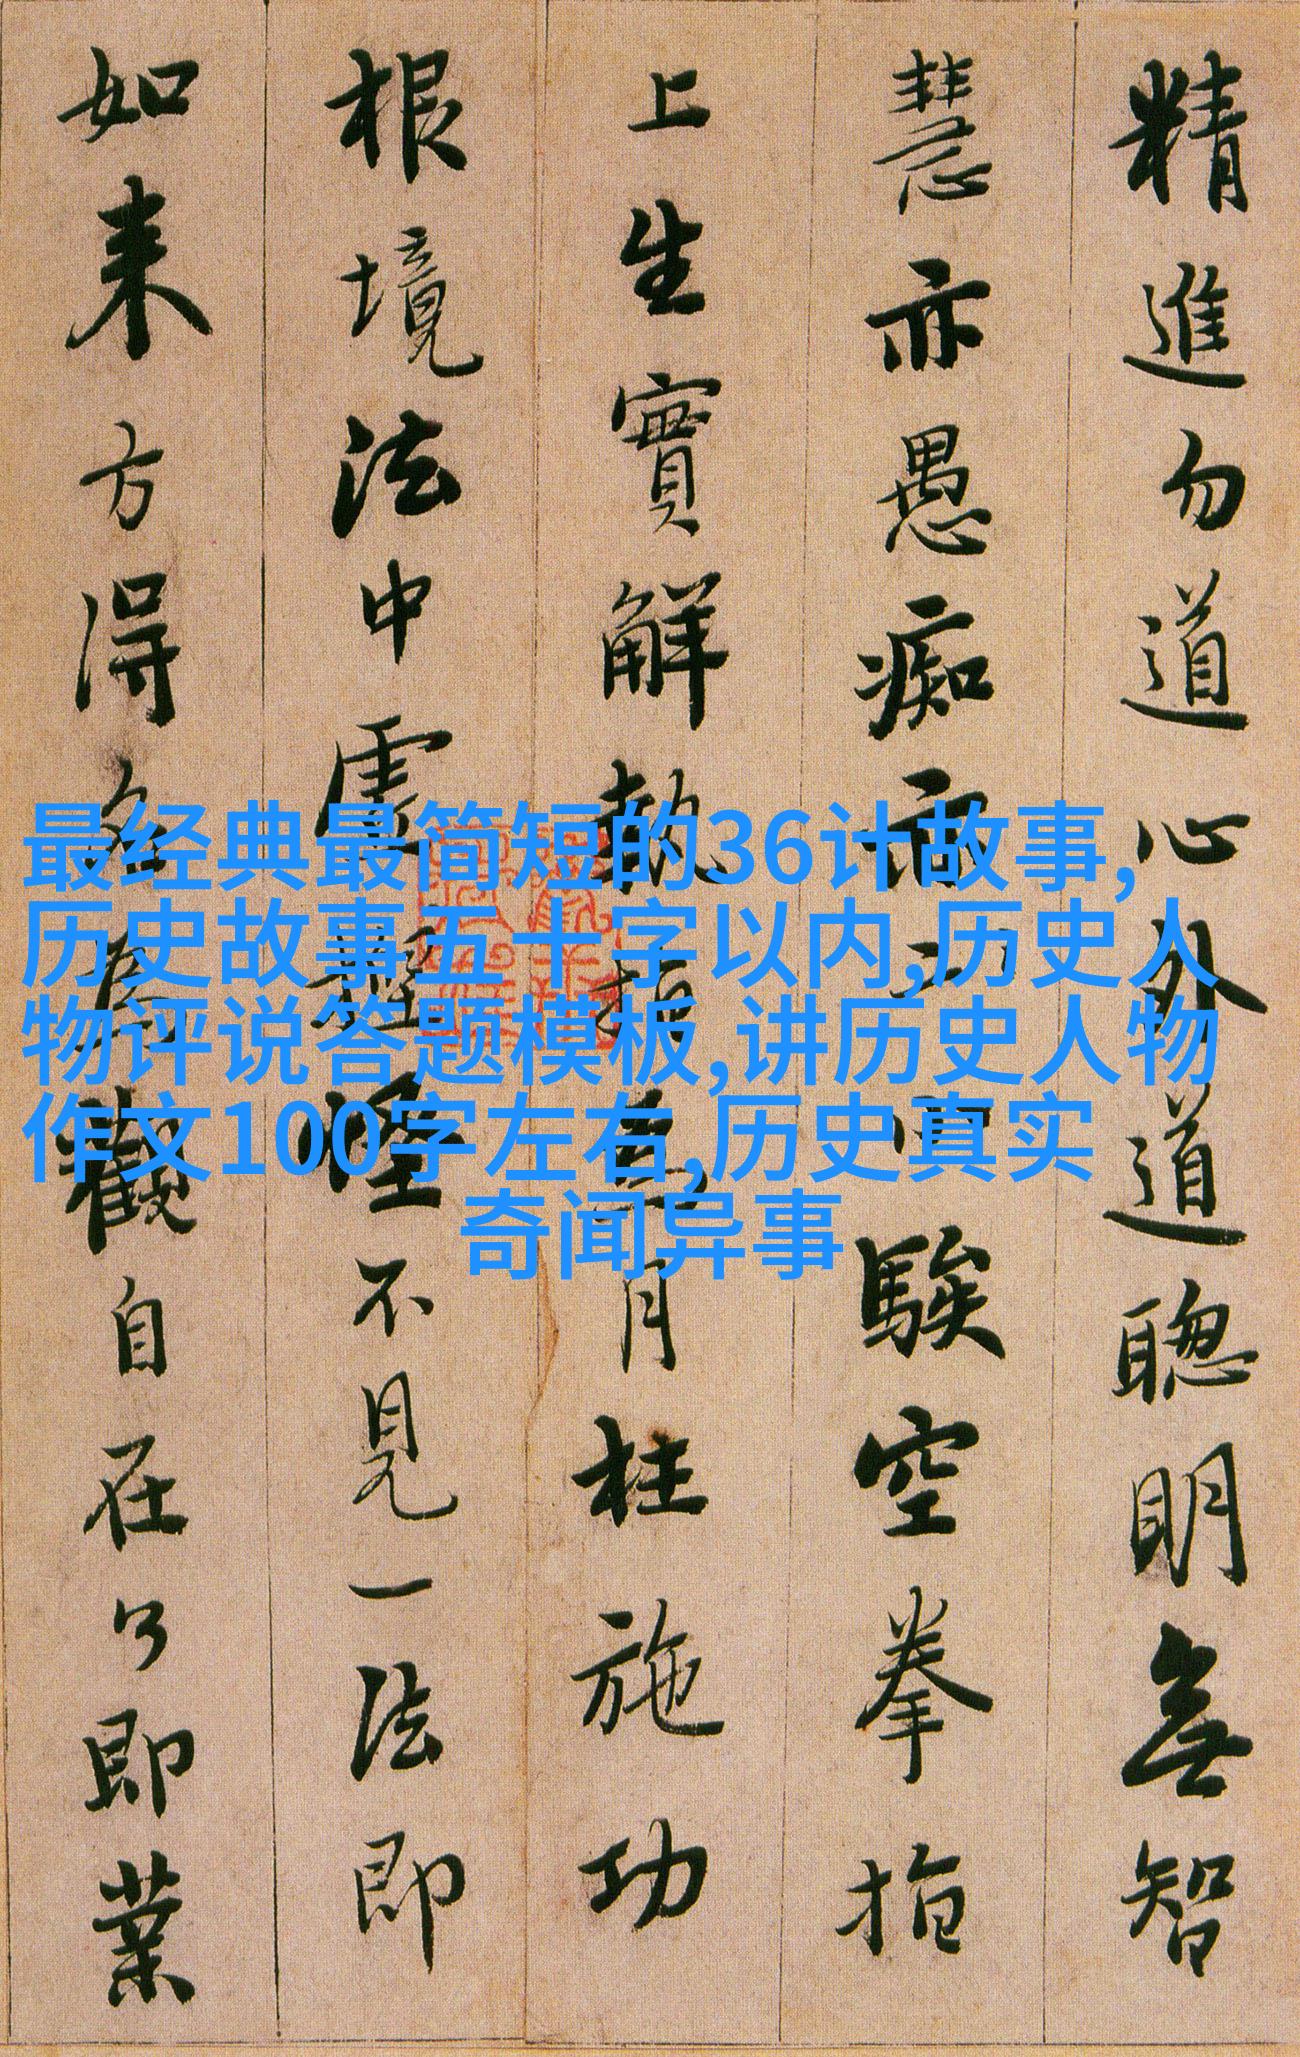 精進勿道心外道聰明無智
慧亦愚癡亦小騃空拳指
上生實解執指為月枉施功
根境法中虛捏怪不見一法即
如来方得名為觀自在了即業
最经典最简短的36计故事,
历史故事五十字以内,历史人
物评说答题模板,讲历史人物
作文100字左右,历史真实
奇闻异事